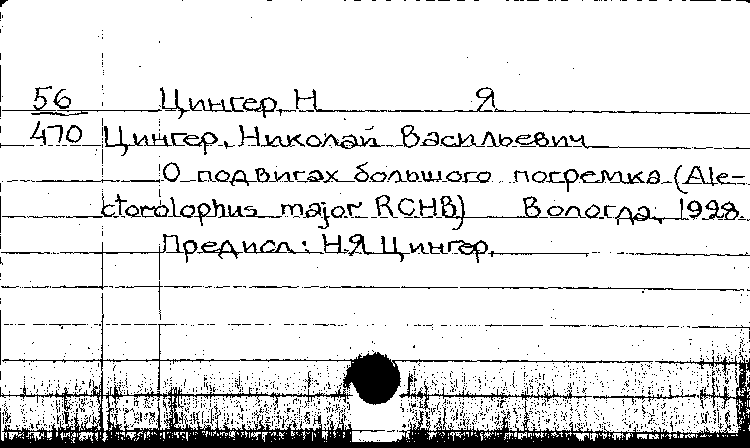 56 Цингер, Н Я
470 Цингер, Николай Васильевич
О подвигах большого погремка (Ale-
ctorolophus major RCHB) Вологда, 1928.
Предисл: Н.Я Цингер.